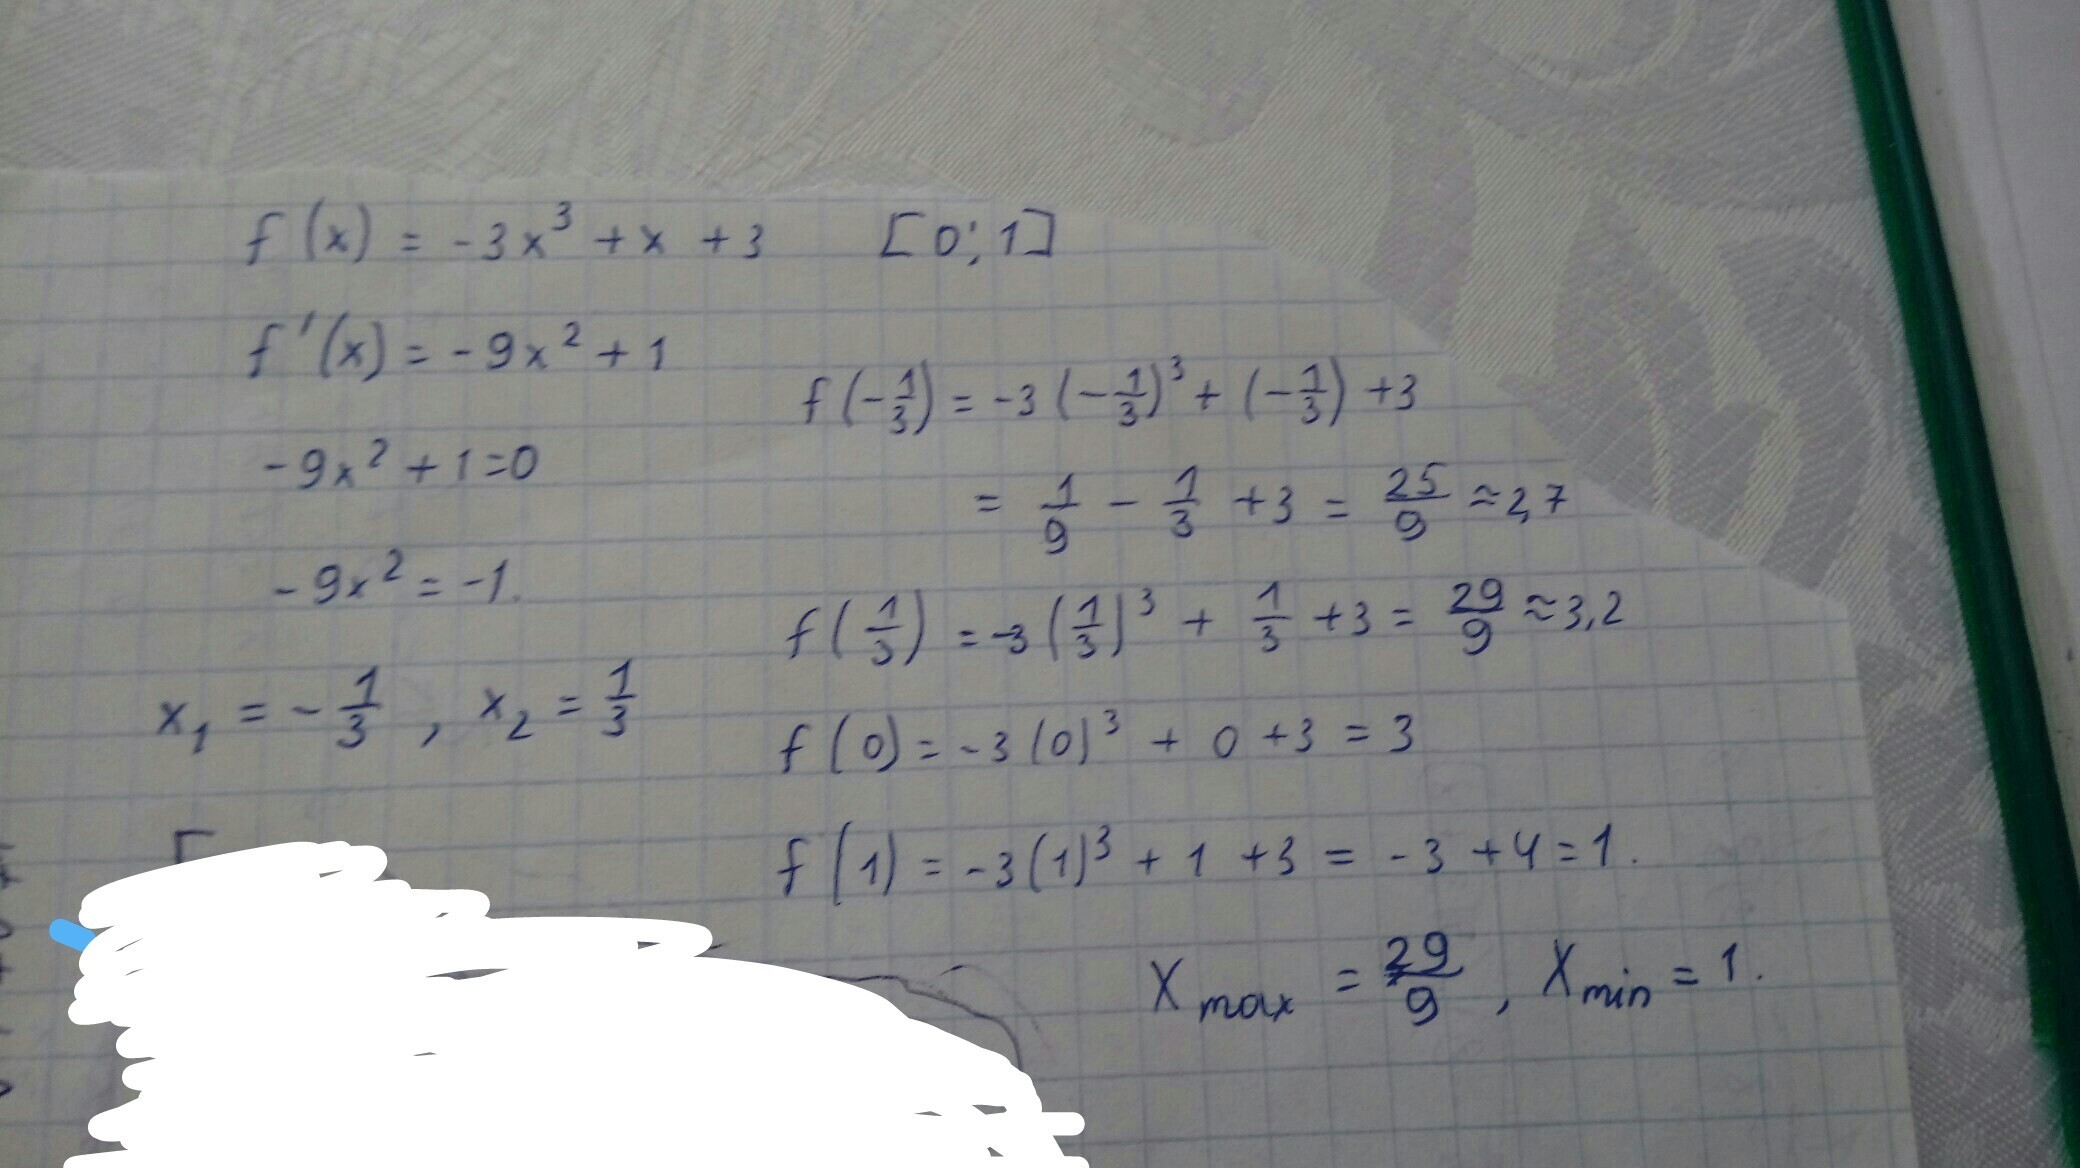 f(x) = -3x³ + x + 3 [0; 1]
f'(x) = -9x² + 1
-9x² + 1 = 0
-9x² = -1.
x₁ = -1/3 , x₂ = 1/3
f(-1/3) = -3(-1/3)³ + (-1/3) + 3
= 1/9 - 1/3 + 3 = 25/9 ≈ 2,7
f(1/3) = -3(1/3)³ + 1/3 + 3 = 29/9 ≈ 3,2
f(0) = -3(0)³ + 0 + 3 = 3
f(1) = -3(1)³ + 1 + 3 = -3 + 4 = 1.
X max = 29/9 , X min = 1.